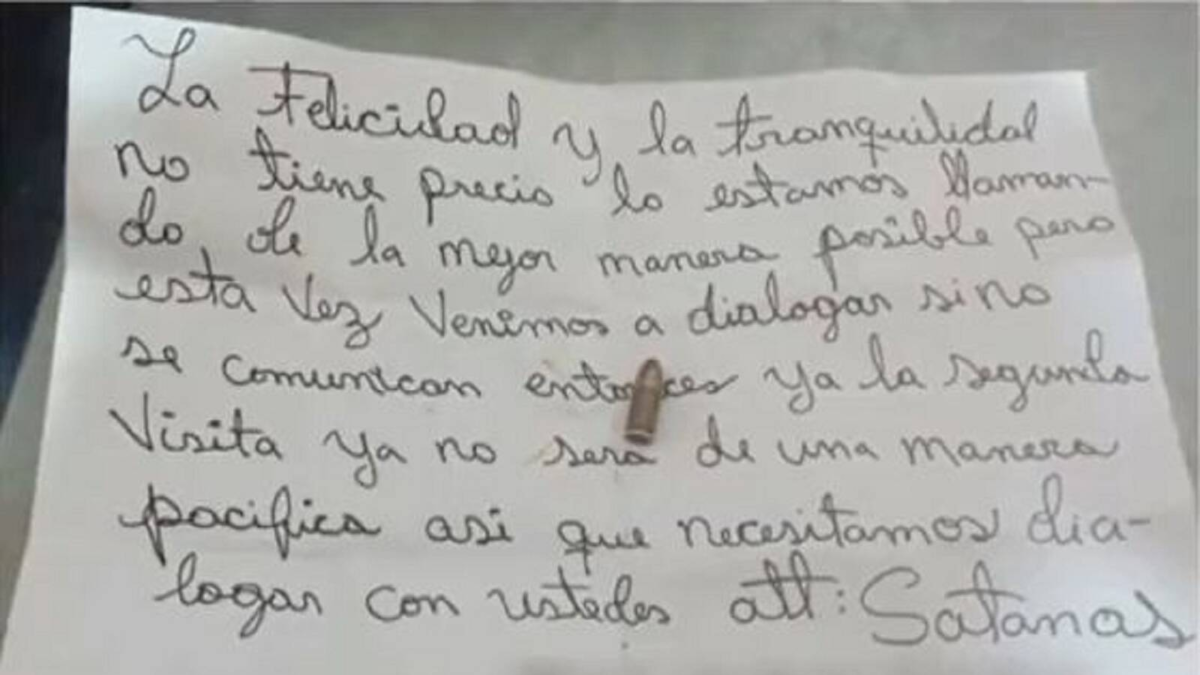 La Felicidad y la tranquilidal
no tiene precio lo estamos llaman-
do, de la mejor manera posible pero
esta vez Venimos a dialogar sino
se comunican entonces ya la segunda
Visita ya no sera de una manera
pacifica asi que necesitamos dia-
logar con ustedes att: Satanas